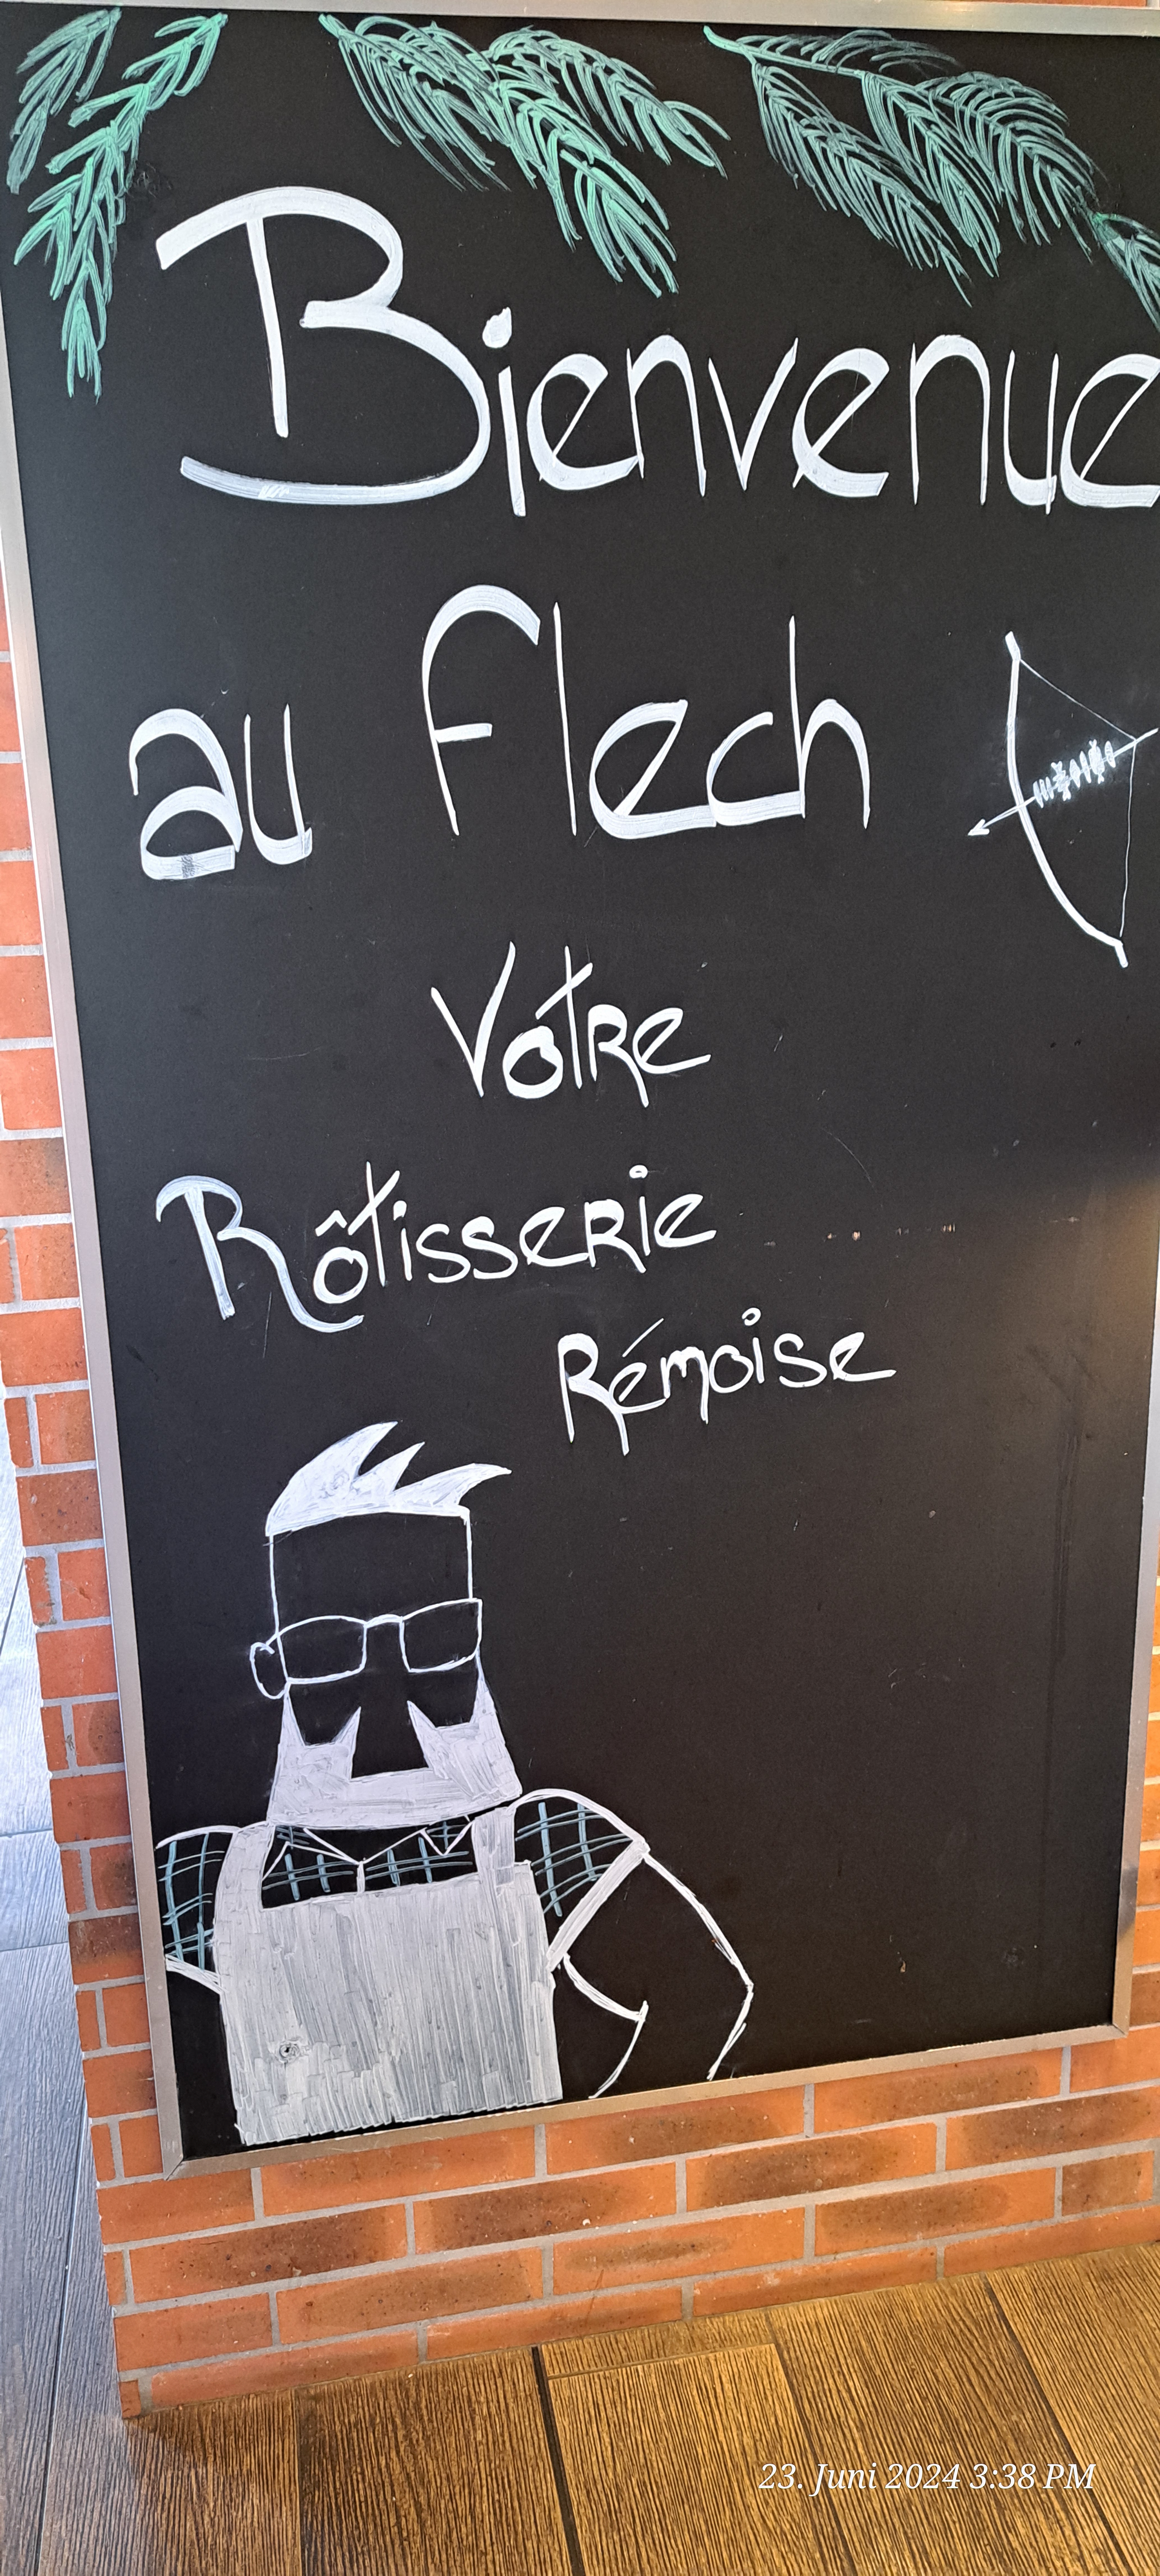 Bienvenue
au Flech
Votre
Rôtisserie
Rémoise
23. Juni 2024 3:38 PM